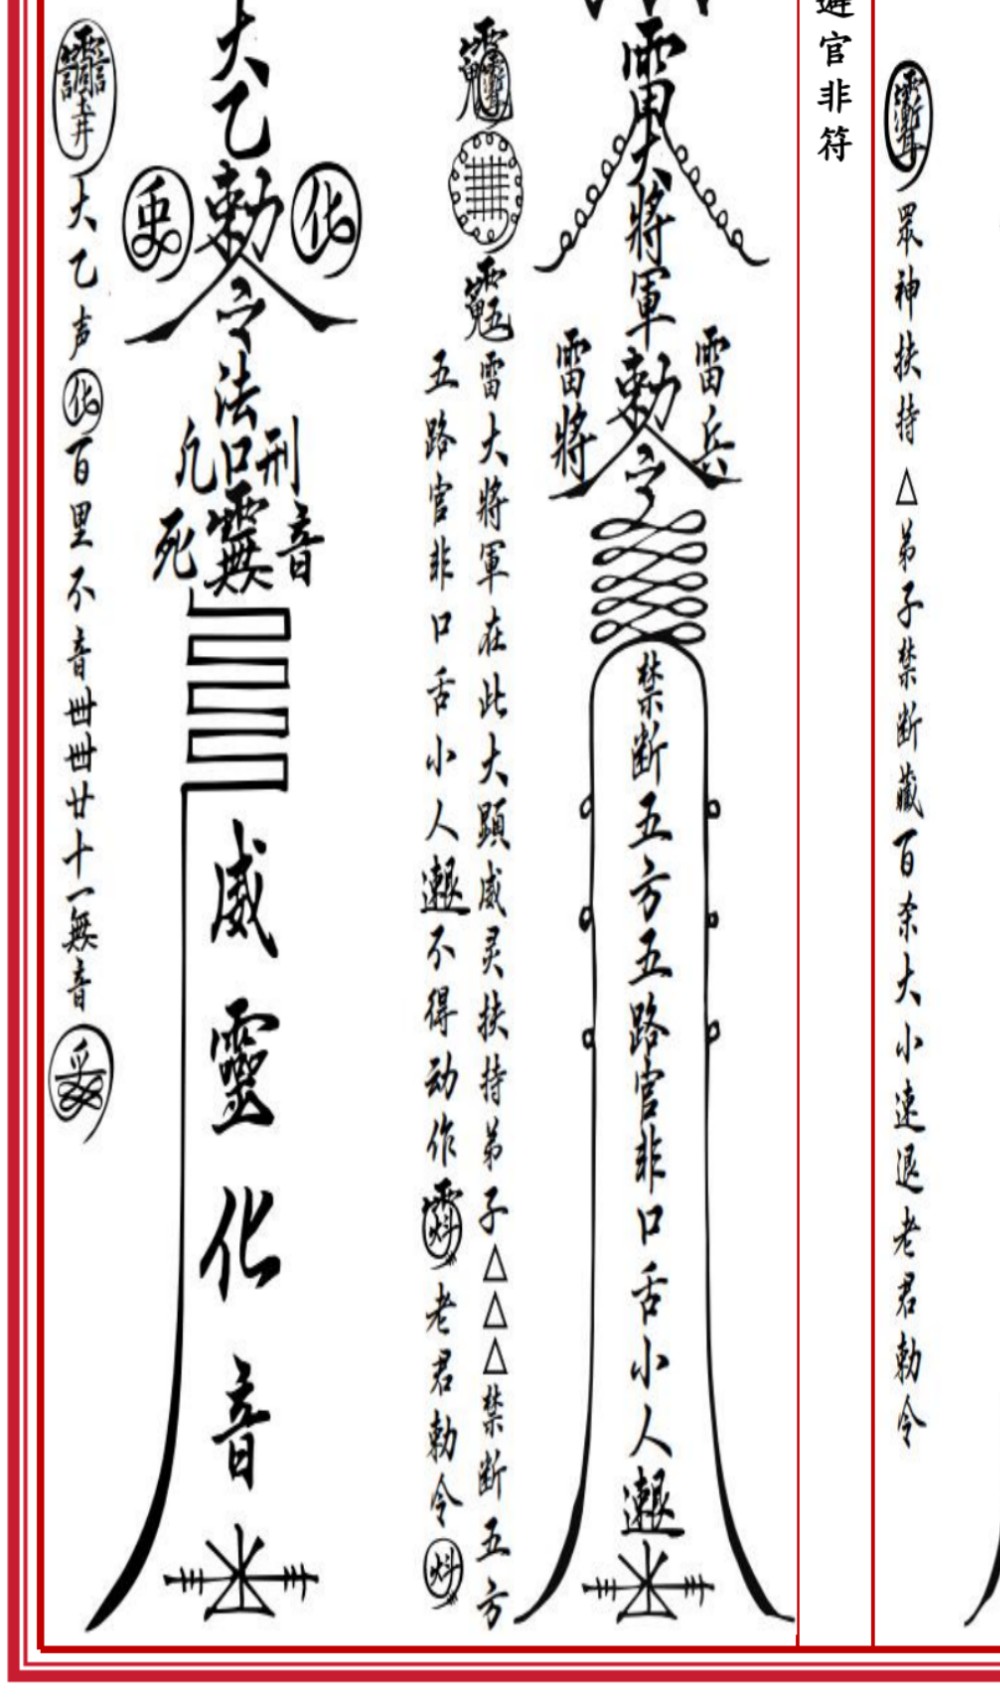 避官非符
眾神扶持△弟子禁断藏百杀大小速退老君勅令
雷大將軍
雷兵
勅令
雷將
禁断五方五路官非口舌小人
雷大將軍在此大顕威灵扶持弟子△△△禁断五方
五路官非口舌小人不得动作老君勅令
大乙
化
勅令
法
口
刑
死
音
威靈化音
大乙声化百里不音卌卌廿十一無音